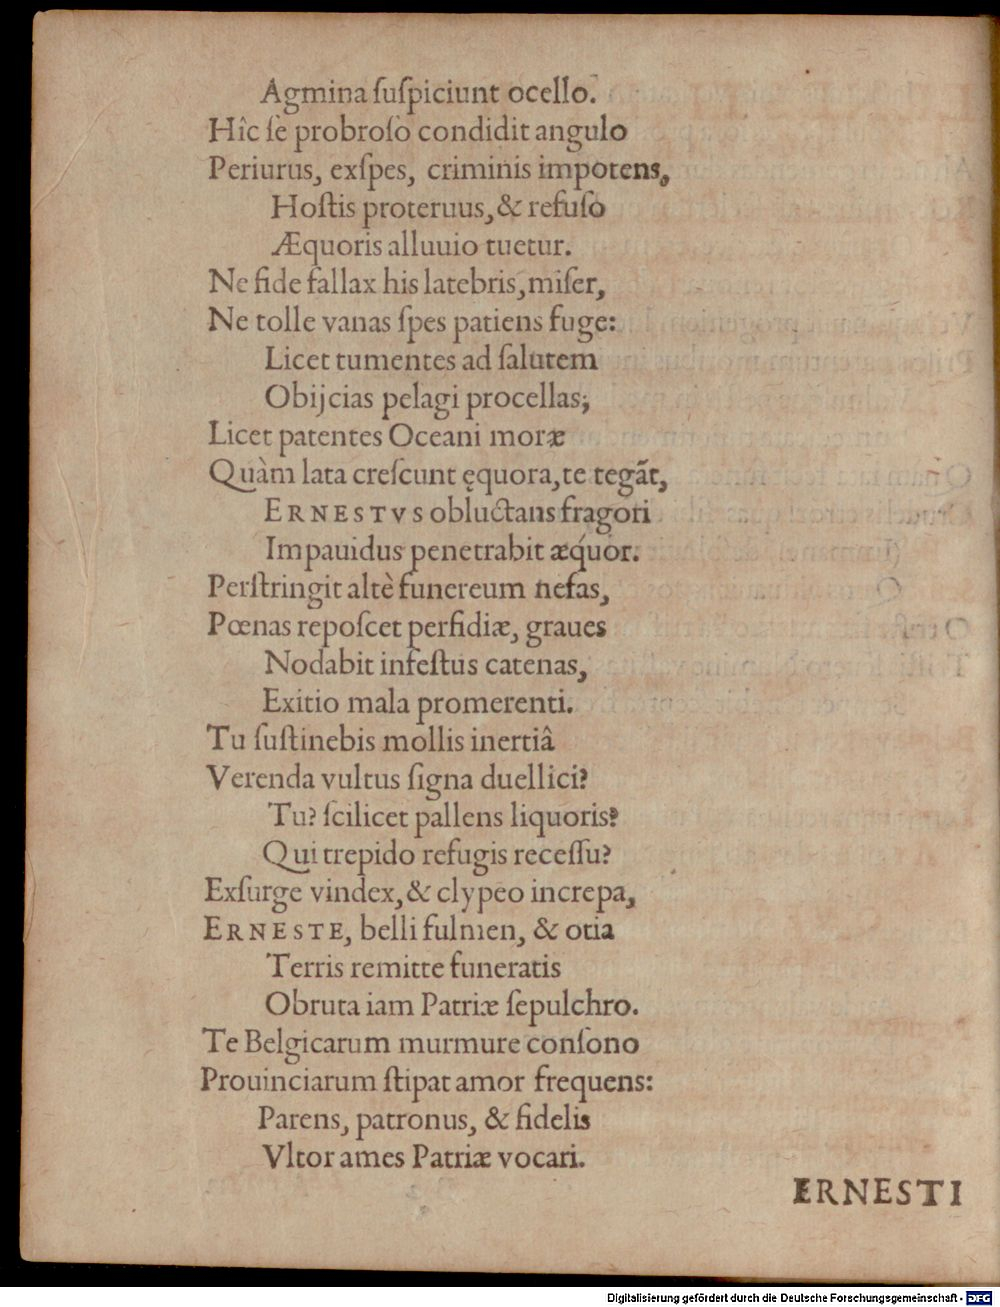 Agmina ſuſpiciunt ocello.
Hîc ſe probroſo condidit angulo
Periurus, exſpes, criminis impotens,
Hoſtis proteruus, & refuſo
Æquoris alluuio tuetur.
Ne fide fallax his latebris, miſer,
Ne tolle vanas ſpes patiens fugę:
Licet tumentes ad ſalutem
Obijcias pelagi procellas;
Licet patentes Oceani moræ
Quàm lata creſcunt ęquora, te tegãt,
ERNESTVS obluctans fragori
Impauidus penetrabit æquor.
Perſtringit altè funereum nefas,
Pœnas repoſcet perfidiæ, graues
Nodabit infeſtus catenas,
Exitio mala promerenti.
Tu ſuſtinebis mollis inertiâ
Verenda vultus ſigna duellici?
Tu? ſcilicet pallens liquoris?
Qui trepido refugis receſſu?
Exſurge vindex, & clypeo increpa,
ERNESTE, belli fulmen, & otia
Terris remitte funeratis
Obruta iam Patriæ ſepulchro.
Te Belgicarum murmure conſono
Prouinciarum ſtipat amor frequens:
Parens, patronus, & fidelis
Vltor ames Patriæ vocari.
ERNESTI
Digitalisierung gefördert durch die Deutsche Forschungsgemeinschaft - DFG